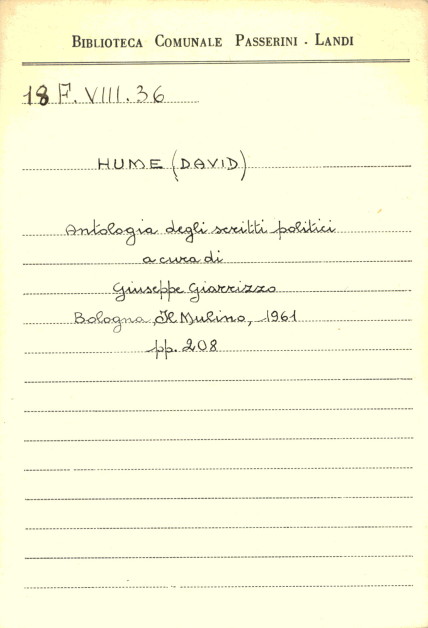 BIBLIOTECA COMUNALE PASSERINI - LANDI
18 F. VIII. 36
HUME (DAVID)
Antologia degli scritti politici
a cura di
Giuseppe Giarrizzo
Bologna, Il Mulino, 1961
pp. 208